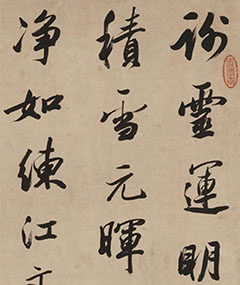 謝靈運明
積雪元暉
净如練江文